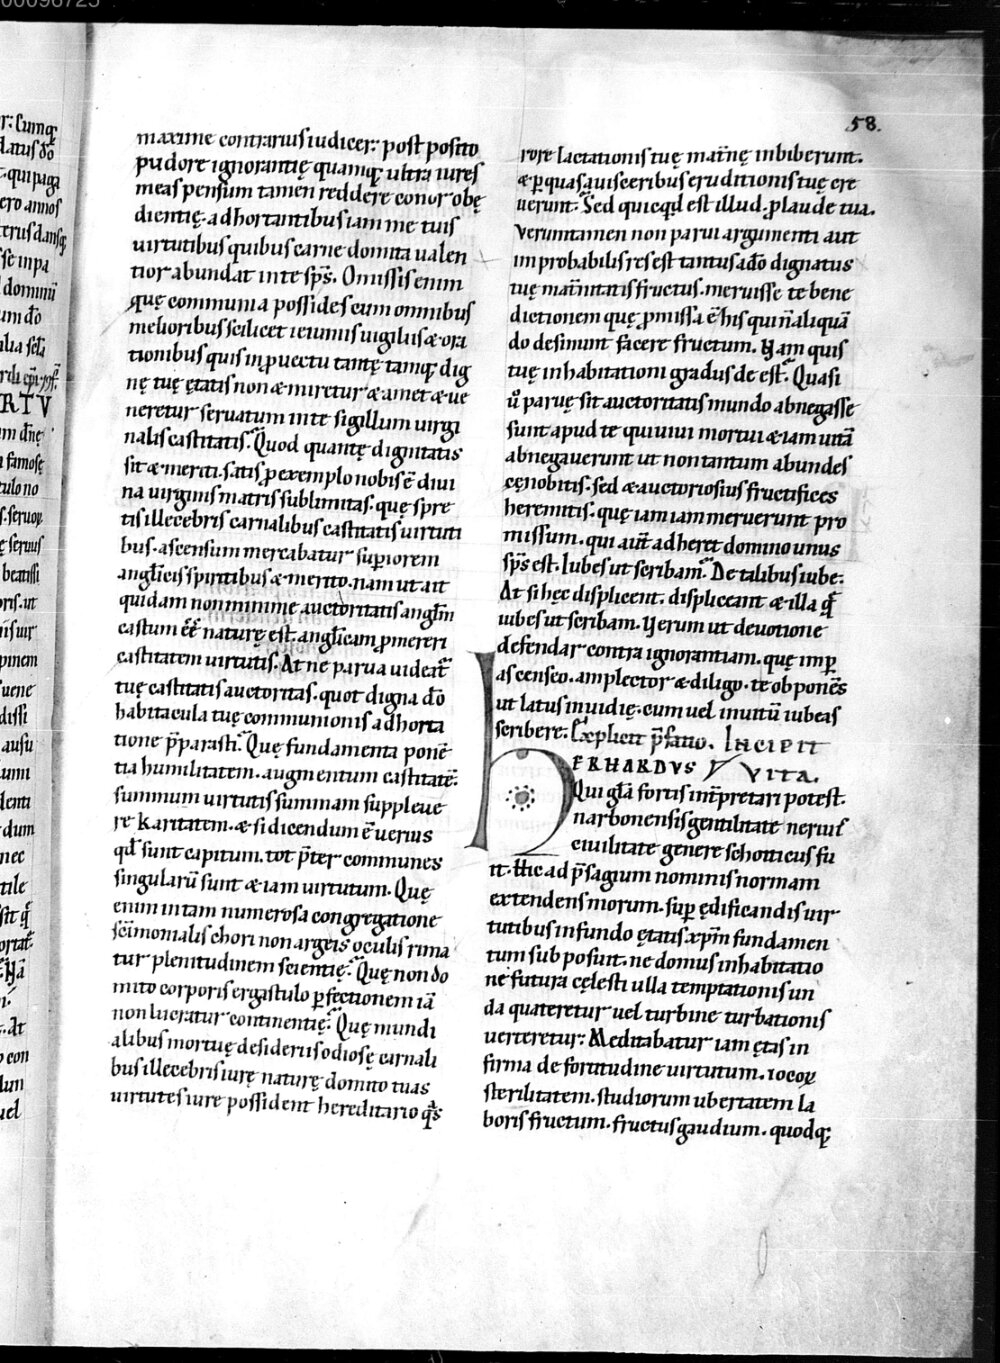 00098725
58.
maxime contrarius iudicer: post posito
pudore ignorantię quamq; ultra uires
meas pensum tamen reddere conor obę
dientię. adhortantibus iam me tuis
uirtutibus quibus carne domita ualen
tior abundat in te sp̄s. Omissis enim
quę communia possides cum omnibus
melioribus scilicet ieiuniis uigiliis & ora
tionibus quis in prouectu tantę tamq; dig
nę tuę ętatis non & miretur & amet & ue
neretur seruatum in te sigillum uirgi
nalis castitatis. Quod quantę dignitatis
sit & meriti. satis ꝓ exemplo nobis ē diui
na uirginis matris sublimitas. quę spre
tis illecebris carnalibus castitatis uirtuti
bus. ascensum mercabatur sup̱iorem
angl̄icis spiritibus & merito. nam ut ait
quidam non minime auctoritatis angl̄m
castum ēē naturę est. angl̄icam ꝓmereri
castitatem uirtutis. At ne parua uideat᷑
tuę castitatis auctoritas. quot digna dō
habitacula tuę communionis adhorta
tione p̄parasti. Quę fundamenta ponē
tia humilitatem. augmentum castitatē.
summum uirtutis summam suppleue
re karitatem. & si dicendum ē uerius
qd̄ sunt capitum. tot p̄ter communes
singularū sunt & iam uirtutum. Quę
enim in tam numerosa congregatione
sc̄imonialis chori non argeis oculis rima
tur plenitudinem scientię. Quę non do
mito corporis ergastulo ꝑfectionem iā
non lucratur continentię. Quę mundi
alibus mortuę desideriis odiosę carnali
bus illecebris iurę naturę domito tuas
uirtutes iure possident hereditario q̄s
rore lactationis tuę mat̄nę imbiberunt.
& ꝑ quasa uisceribus eruditionis tuę cre
uerunt. Sed quicqd est illud. ꝓ laude tua.
Veruntamen non parui argumenti aut
improbabilis res est tantus adō dignatus
tuę mat̄nitatis fructus. meruisse te bene
dictionem quę ꝓmissa ē his qui n̄ aliquā
do desinunt facere fructum. Nam quis
tuę inhabitationi gradus de est. Quasi
ū paruę sit auctoritatis mundo abnegasse
sunt apud te qui uiui mortui & iam uitā
abnegauerunt ut non tantum abundes
cęnobitis. sed & auctoriosius fructifices
heremitis. quę iam iam meruerunt pro
missum. qui aut̄ adheret domino unus
sp̄s est. Iubes ut scribam. De talibus iube.
At si hęc displicent. displiceant & illa q̄
iubes ut scribam. Uerum ut deuotione
defendar contra ignorantiam. quę imp̱
as censeo. amplector & diligo. te obponēs
ut latus inuidię. cum uel inuitū iubeas
scribere. Explicit p̄fatio. INCIPIT
ERHARDVS VITA.
Qui gl̄a fortis int̄pretari potest.
narbonensis gentilitate neruiꝰ
ciuilitate genere schotticus fu
it. Hic ad p̄sagium nominis normam
extendens morum. sup̱ ędificandis uir
tutibus in fundo ętatis xp̄m fundamen
tum subposuit. ne domus inhabitatio
ne futura cęlesti ulla temptationis un
da quateretur uel turbine turbationis
uerteretur: Meditabatur iam ętas in
firma de fortitudine uirtutum. iocoꝝ
sterilitatem. studiorum ubertatem la
boris fructum. fructus gaudium. quodq;